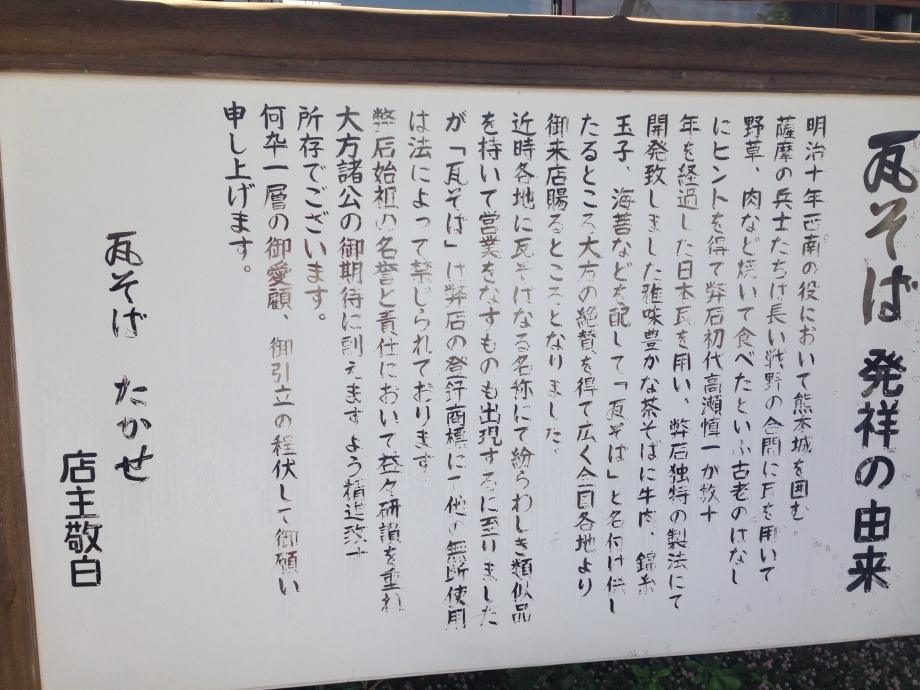 瓦そば 発祥の由来
明治十年西南の役において熊本城を囲む
薩摩の兵士たちは長い戦野の合間に瓦を用いて
野草、肉など焼いて食べたといふ古老のはなし
にヒントを得て弊店初代高瀬慎一が数十
年を経過した日本瓦を用い、弊店独特の製法にて
開発致しました雅味豊かな茶そばに牛肉、錦糸
玉子、海苔などを配して「瓦そば」と名付け供し
たるところ大方の絶賛を得て広く全国各地より
御来店賜るところとなりました。
近時各地に瓦そばなる名称にて紛らわしき類似品
を持いて営業をなすものも出現するに至りました
が「瓦そば」は弊店の登録商標にて他の無断使用
は法によって禁じられております。
弊店始祖の名誉と責任において益々研鑽を重ね
大方諸公の御期待に副えますよう精進致す
所存でございます。
何卒一層の御愛顧、御引立の程伏して御願い
申し上げます。
瓦そば たかせ
店主敬白